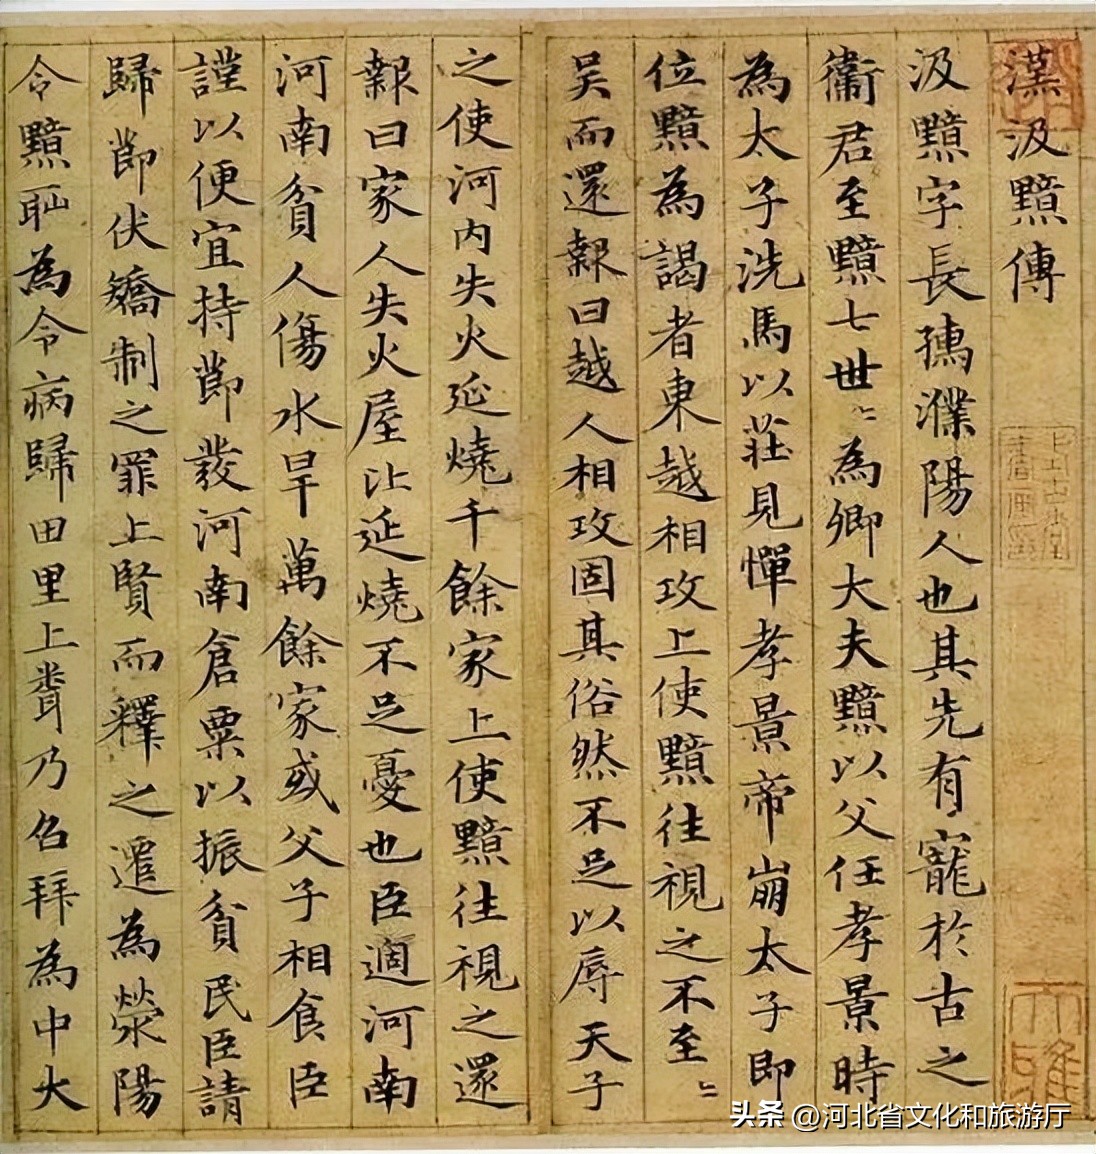 漢汲黯傳
汲黯字長孺濮陽人也其先有寵於古之
衞君至黯七世〻為卿大夫黯以父任孝景時
為太子洗馬以莊見憚孝景帝崩太子即
位黯為謁者東越相攻上使黯往視之不至〻
吴而還報曰越人相攻固其俗然不足以辱天子
之使河内失火延燒千餘家上使黯往視之還
報曰家人失火屋比延燒不足憂也臣適河南
河南貧人傷水旱萬餘家或父子相食臣
謹以便宜持節發河南倉粟以振貧民臣請
歸節伏矯制之罪上賢而釋之遷為滎陽
令黯恥為令病歸田里上聞乃召拜為中大
头条 @河北省文化和旅游厅